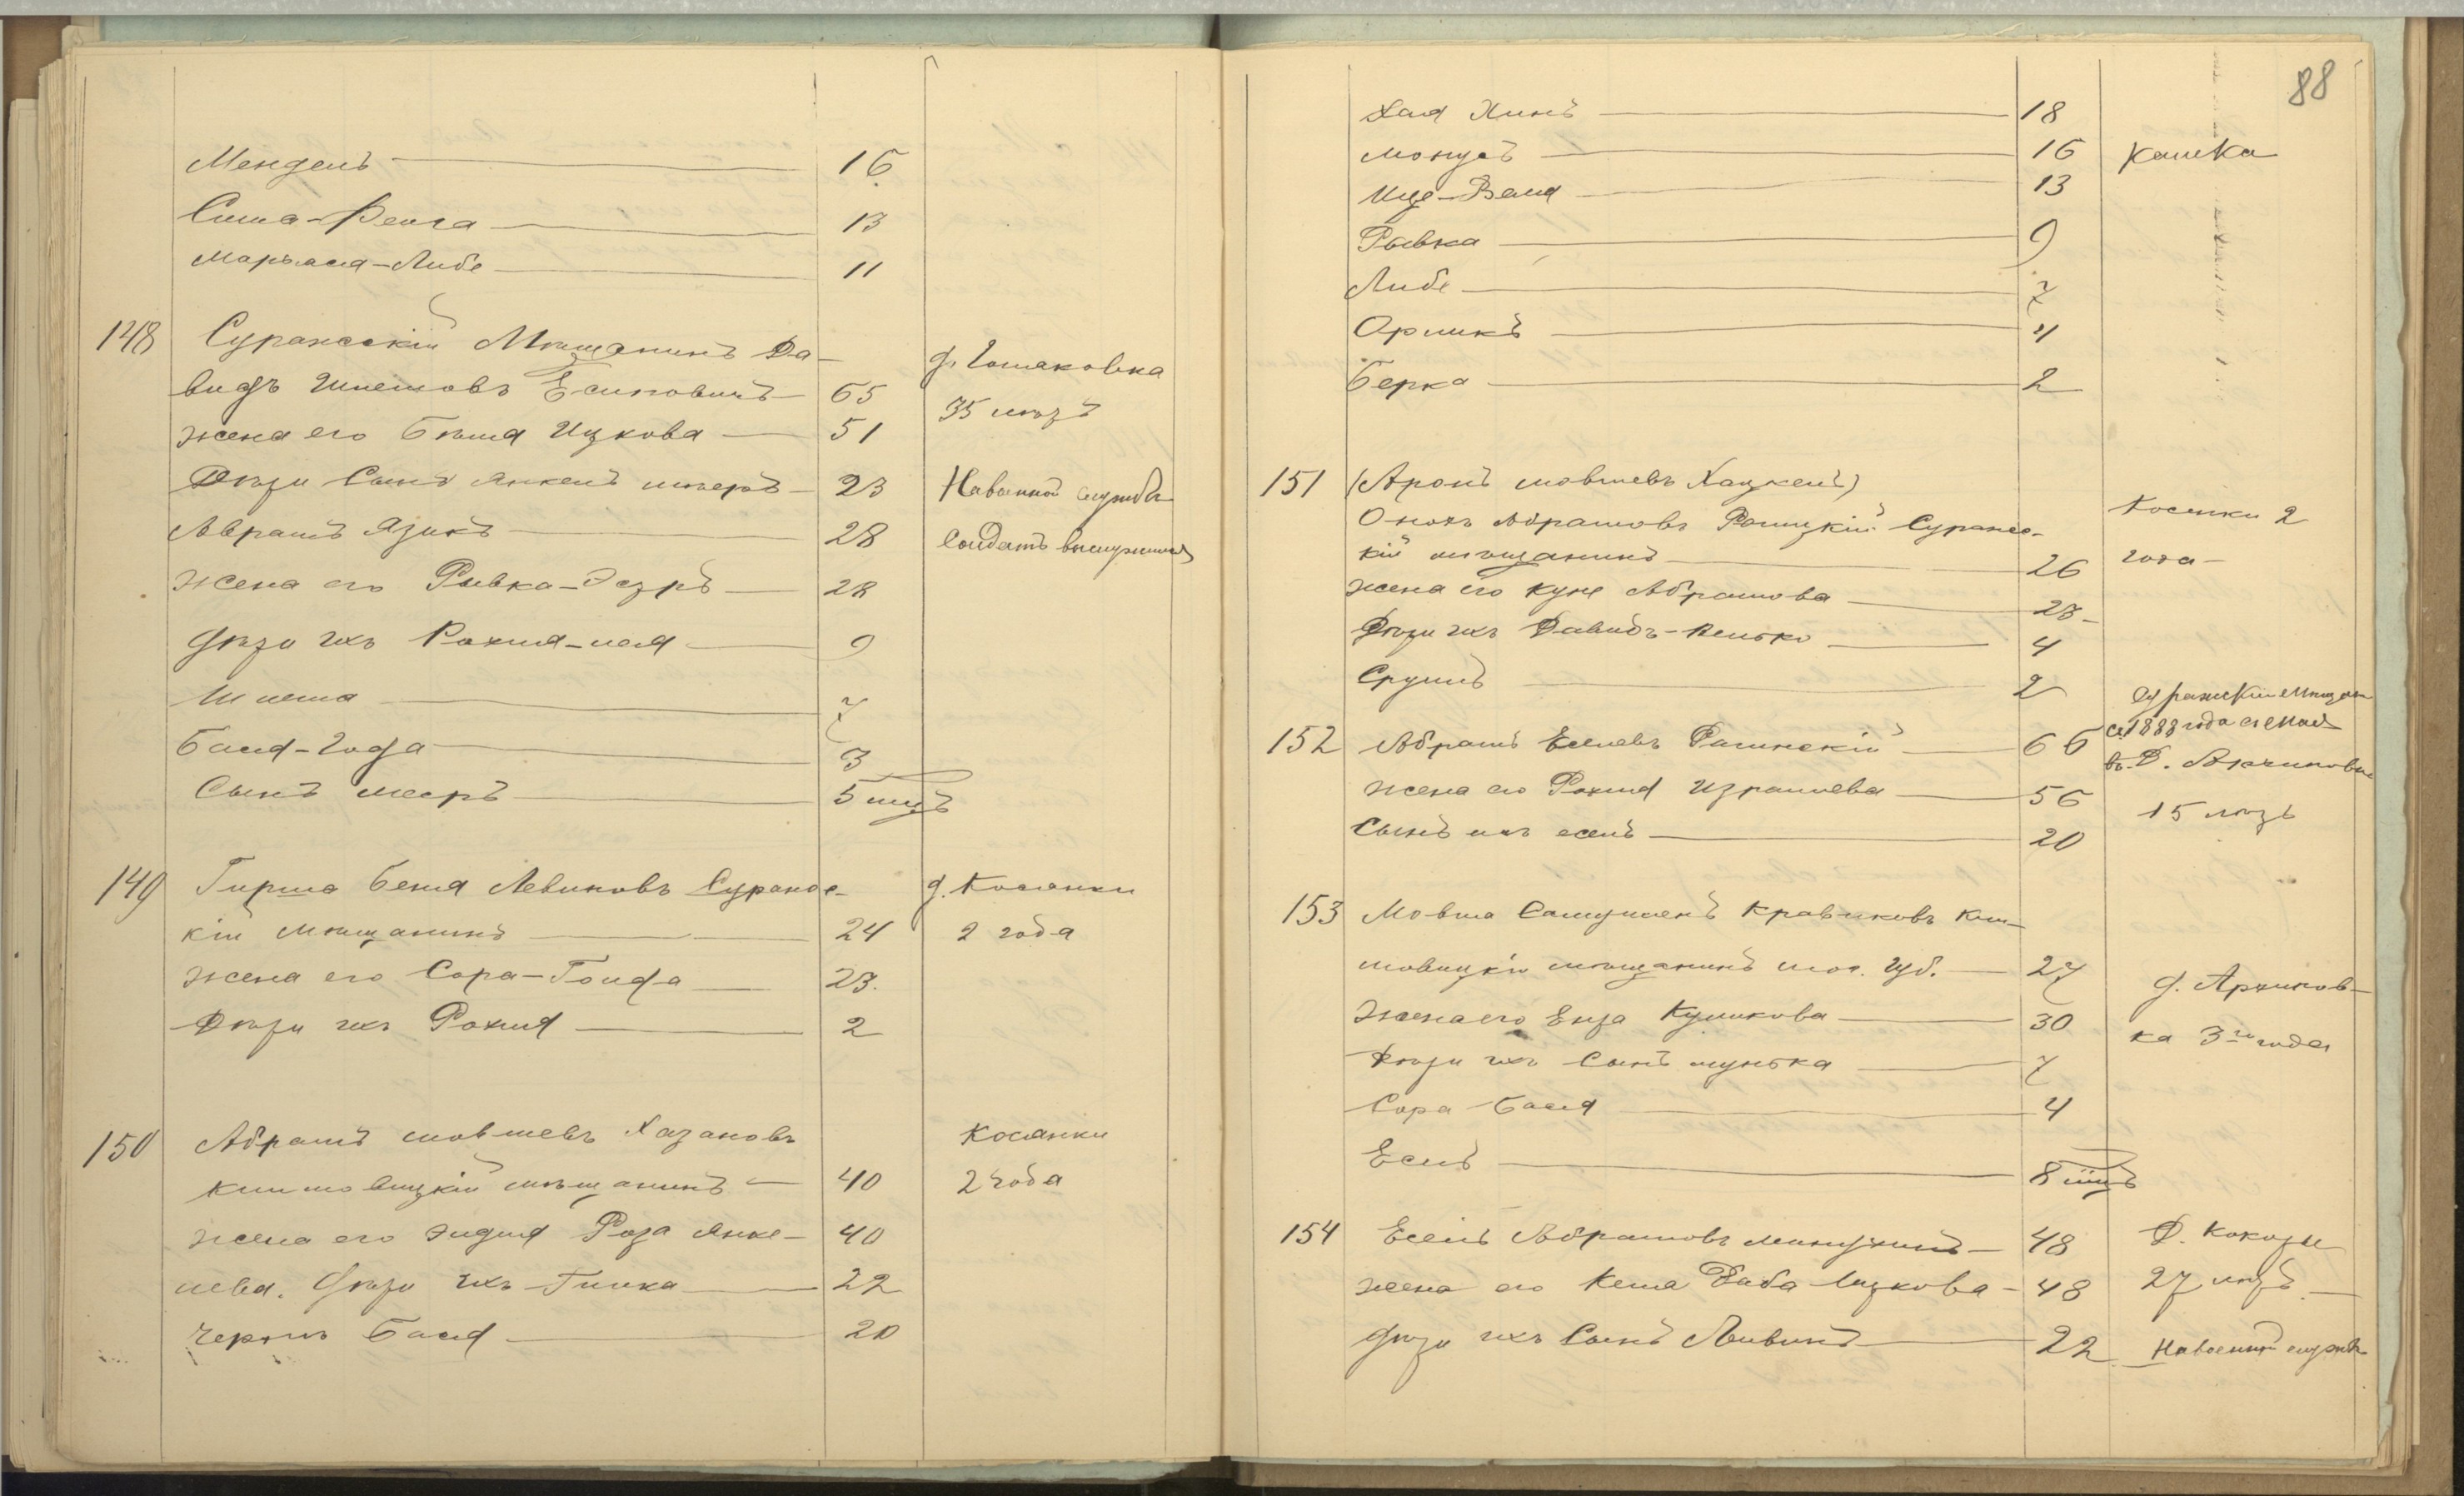 Мендель 16
Сима-Фейга 13
Марьася-Либе 11
148 Суражскій Мѣщанинъ Да-
видъ Шлемовъ Есиповичъ 65
д. Голяковка
35 лѣтъ
жена его Бейля Ицкова 51
Дѣти Сынъ Янкель 23 На военной службѣ
Абрамъ Язикъ 28 Солдатъ выслужилъ
жена его Рывка-Эсѳръ 28
Дѣти ихъ Рохля-лея 9
Шлема 7
Бася-Года 3
Сынъ мееръ 5 мцъ
149 Гирша Беня Левиковъ Суражс-
кій мѣщанинъ 24
д. Косянки
2 года
жена его Сора-Голда 23.
Дѣти ихъ Рохля 2
150 Абрамъ мовшевъ Хазановъ
Климовицкій мѣщанинъ 40
Косянки
2 года
жена его Роза Янке- 40
лева. Дѣти ихъ Гинка 22
Черня Бася 20
88
Хая Хинъ 18
монусъ 16 Калека
Ице-Веля 13
Рывка 9
Либе 7
Орликъ 4
Берка 2
151 (Аронъ мовшевъ Хацкель)
Онохъ Абрамовъ Суражс-
кій мѣщанинъ 26
Косянки 2
года
жена его Куне Абрамова 28
Дѣти ихъ Давидъ-Велько 4
Сруль 2
152 Абрамъ Еселевъ 66
Суражскій мѣщан
съ 1888 года съ мая
въ Д. Архиповке
15 лѣтъ
жена его Рохля Израилева 56
Сынъ ихъ есель 20
153 Мовша Самуиленъ Кравчиковъ Кли-
мовицкій мѣщанинъ мог. губ. 27
д. Архипов-
ка 3 года
жена его Енза Куликова 30
Дѣти ихъ Сынъ мунька 7
Сора-Бася 4
Есель 8 мцъ
154 Есель Абрамовъ 48
Д. Кокоты
27 лѣтъ
жена его Кеша Баба Ицкова 48
Дѣти ихъ Сынъ Лейвикъ 22 На военной службѣ